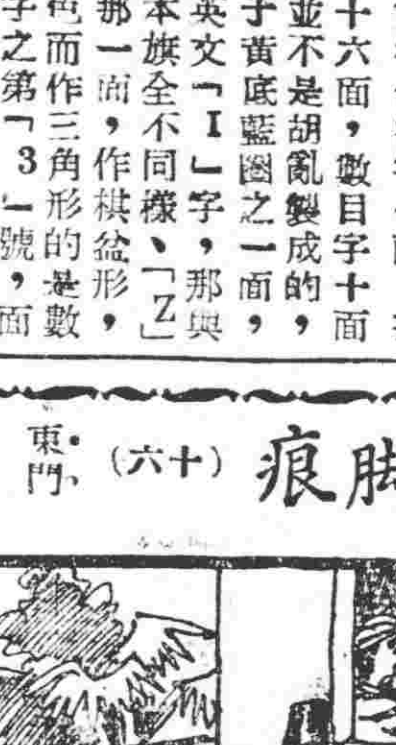 十六面，數目字十面
並不是胡亂製成的，
子黃底藍圈之一面，
英文「I」字，那與
本旗全不同樣、「Z」
那一面，作棋盆形，
色而作三角形的是數
字之第「3」號，面
脚痕
（十六）
東門